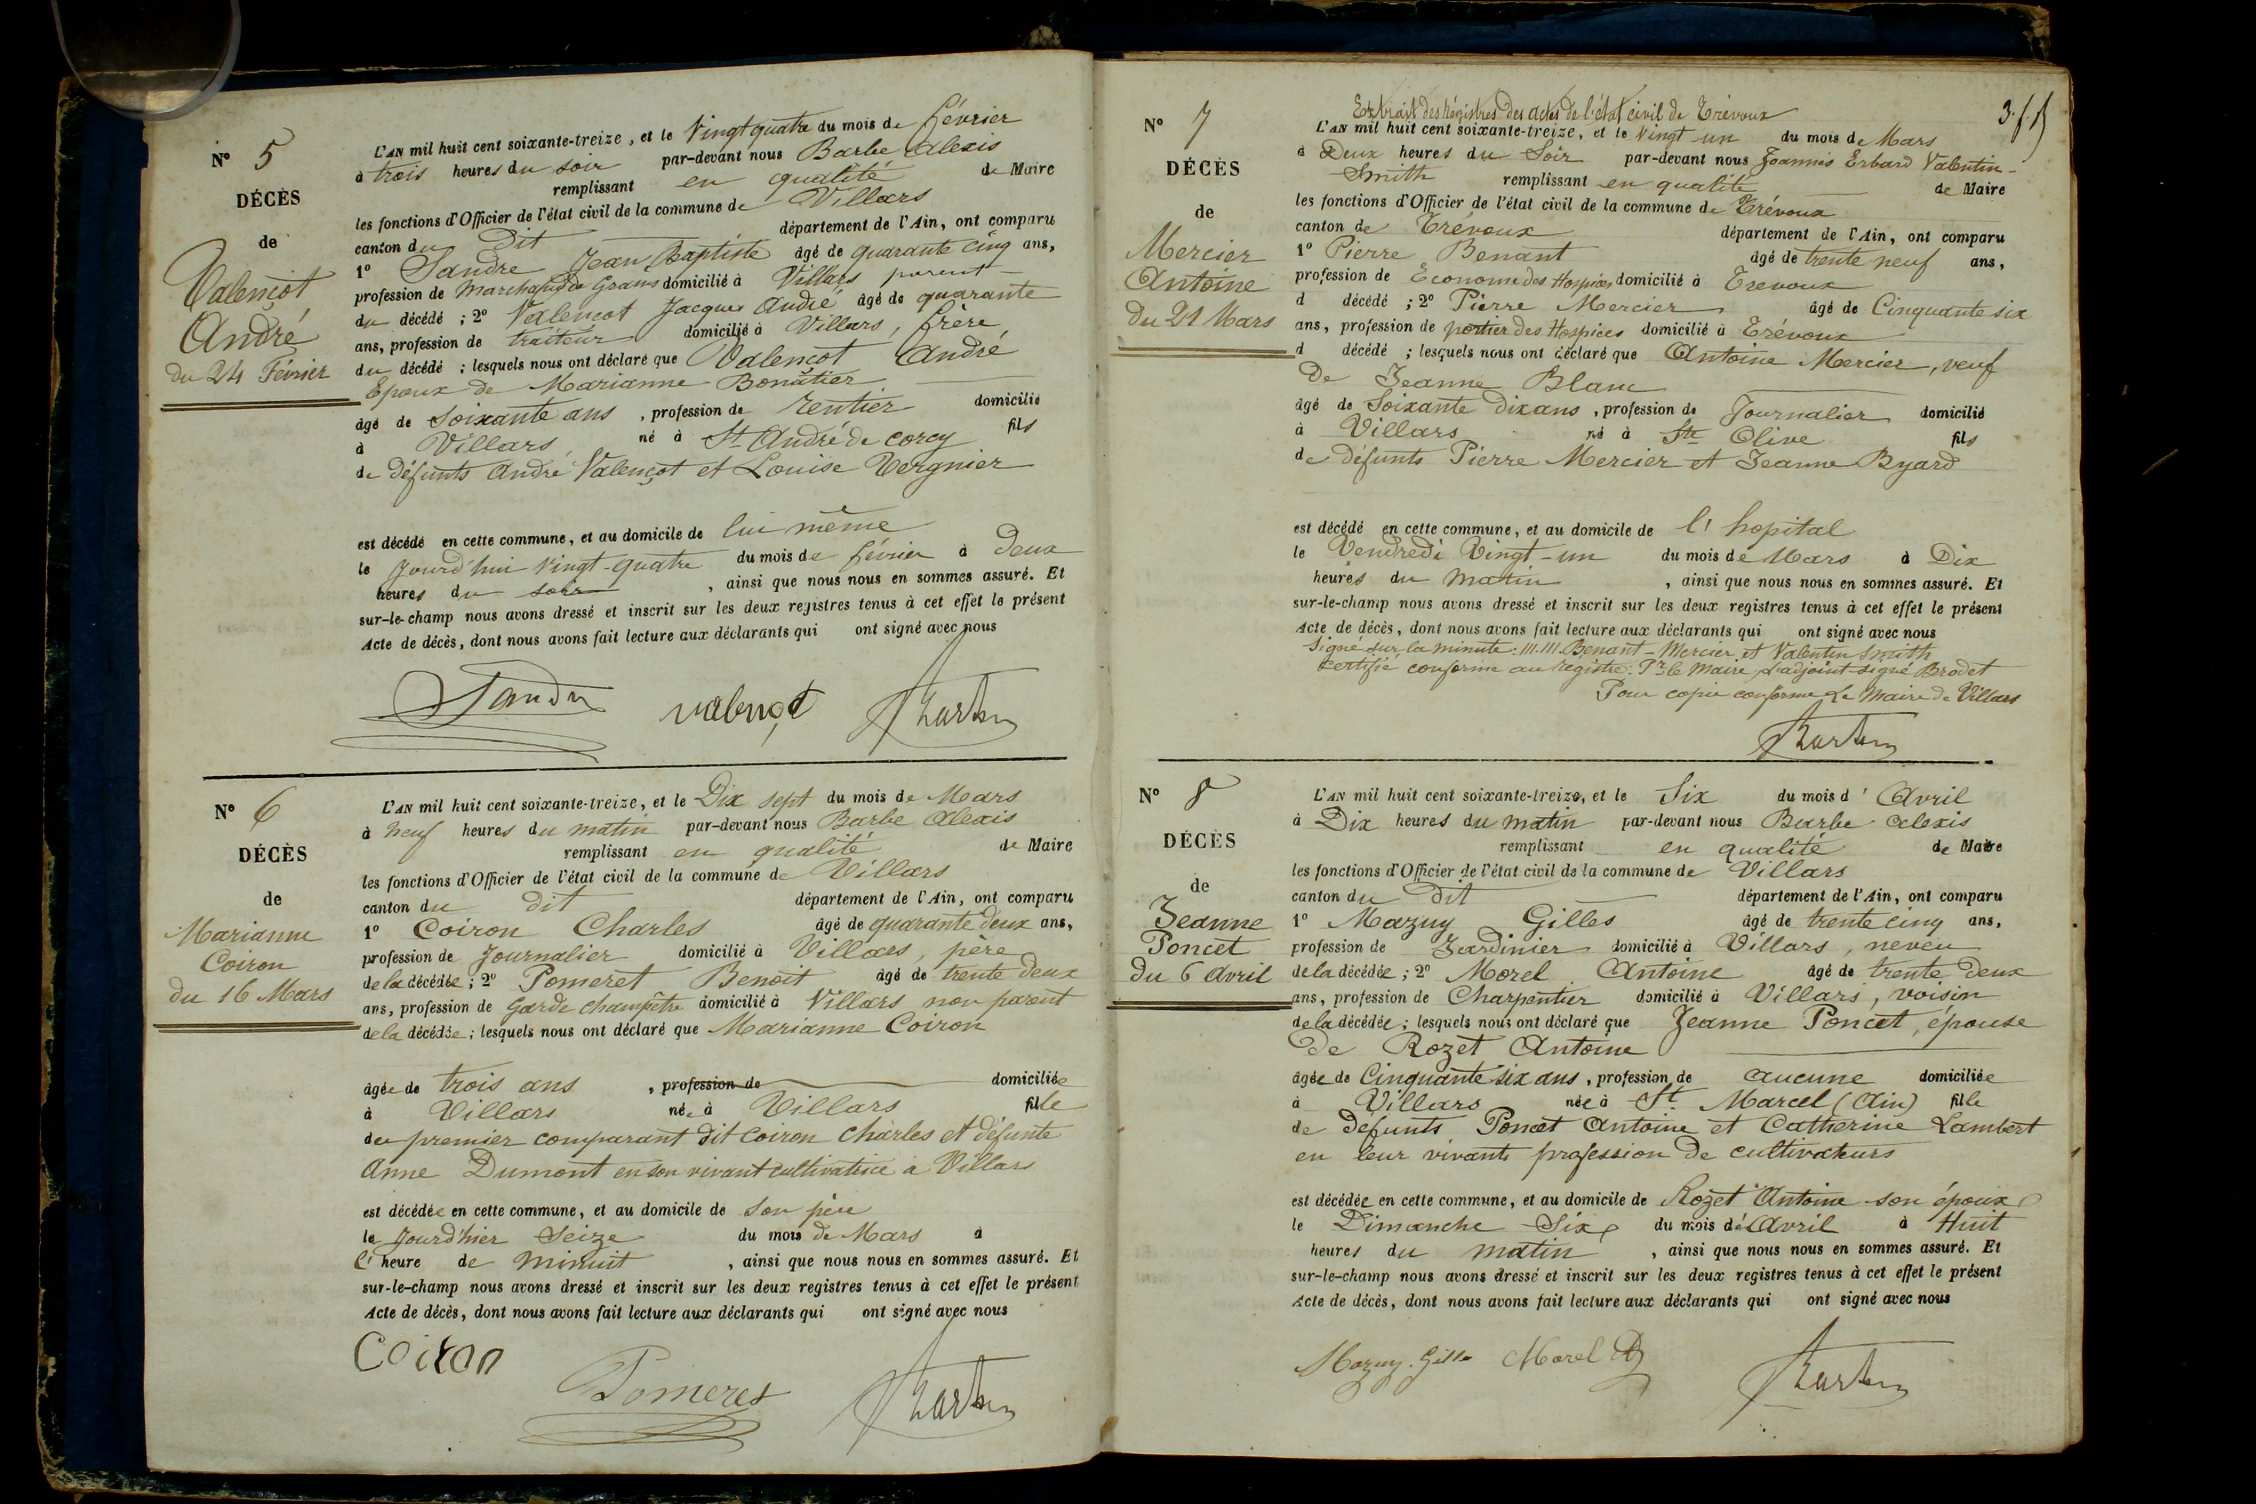 N° 5
DÉCÈS
de
Valençot
André
du 24 Février
L'AN mil huit cent soixante-treize, et le Vingt quatre du mois de février
à trois heures du soir par-devant nous Barbe Alexis
remplissant en qualité de Maire
les fonctions d'Officier de l'état civil de la commune de Villars
canton du Dit département de l'Ain, ont comparu
1° Sandre Jean Baptiste âgé de quarante cinq ans,
profession de Marchand de Grains domicilié à Villars parent
du décédé ; 2° Valencot Jacques André âgé de quarante
ans, profession de traiteur domicilié à Villars, frère
du décédé ; lesquels nous ont déclaré que Valençot André
Epoux de Marianne Bonatier
âgé de Soixante ans, profession de rentier domicilié
à Villars né à St André de corcy fils
de défunts André Valençot et Louise Vergnier
est décédé en cette commune, et au domicile de lui même
le Jourd'hui Vingt-quatre du mois de février à Deux
heures du soir, ainsi que nous nous en sommes assuré. Et
sur-le-champ nous avons dressé et inscrit sur les deux registres tenus à cet effet le présent
Acte de décès, dont nous avons fait lecture aux déclarants qui ont signé avec nous
Sandre valençot
N° 6
DÉCÈS
de
Marianne
Coiron
du 16 Mars
L'AN mil huit cent soixante-treize, et le Dix sept du mois de Mars
à neuf heures du matin par-devant nous Barbe Alexis
remplissant en qualité de Maire
les fonctions d'Officier de l'état civil de la commune de Villars
canton du dit département de l'Ain, ont comparu
1° Coiron Charles âgé de quarante deux ans,
profession de Journalier domicilié à Villars, père
de la décédée ; 2° Pomeret Benoit âgé de trente deux
ans, profession de Garde champêtre domicilié à Villars non parent
de la décédée ; lesquels nous ont déclaré que Marianne Coiron
âgée de trois ans, profession de domiciliée
à Villars née à Villars fille
du premier comparant dit Coiron Charles et défunte
Anne Dumont en son vivant cultivatrice à Villars
est décédée en cette commune, et au domicile de son père
le Jourd'hier Seize du mois de Mars à
l'heure de minuit, ainsi que nous nous en sommes assuré. Et
sur-le-champ nous avons dressé et inscrit sur les deux registres tenus à cet effet le présent
Acte de décès, dont nous avons fait lecture aux déclarants qui ont signé avec nous
Coiron
Pomeret
N° 7
DÉCÈS
de
Mercier
Antoine
du 21 Mars
Extrait des Régistres des actes de l'état civil de Trévoux
L'AN mil huit cent soixante-treize, et le Vingt un du mois de Mars
à Deux heures du Soir par-devant nous Joannis Erbard Valentin-
Smith remplissant en qualité de Maire
les fonctions d'Officier de l'état civil de la commune de Trévoux
canton de Trévoux département de l'Ain, ont comparu
1° Pierre Benant âgé de trente neuf ans,
profession de Econome des Hospices domicilié à Trévoux
d décédé ; 2° Pierre Mercier âgé de Cinquante six
ans, profession de portier des Hospices domicilié à Trévoux
d décédé ; lesquels nous ont déclaré que Antoine Mercier, veuf
De Jeanne Blanc
âgé de Soixante dix ans, profession de Journalier domicilié
à Villars né à Ste Olive fils
de défunts Pierre Mercier et Jeanne Byard
est décédé en cette commune, et au domicile de l'hopital
le Vendredi Vingt-un du mois de Mars à Dix
heures du matin, ainsi que nous nous en sommes assuré. Et
sur-le-champ nous avons dressé et inscrit sur les deux registres tenus à cet effet le présent
Acte de décès, dont nous avons fait lecture aux déclarants qui ont signé avec nous
Signé sur la minute : M.M. Benant - Mercier et Valentin Smith
Certifié conforme au registre : Pr le Maire, L'adjoint signé Brodet
Pour copie conforme Le Maire de Villars
N° 8
DÉCÈS
de
Jeanne
Poncet
du 6 Avril
L'AN mil huit cent soixante-treize, et le Six du mois d'Avril
à Dix heures du matin par-devant nous Barbe Alexis
remplissant en qualité de Maire
les fonctions d'Officier de l'état civil de la commune de Villars
canton du dit département de l'Ain, ont comparu
1° Mazuy Gilles âgé de trente cinq ans,
profession de Jardinier domicilié à Villars, neveu
de la décédée ; 2° Morel Antoine âgé de trente deux
ans, profession de Charpentier domicilié à Villars, voisin
de la décédée ; lesquels nous ont déclaré que Jeanne Poncet, épouse
de Rozet Antoine
âgée de Cinquante six ans, profession de aucune domiciliée
à Villars née à St Marcel (Ain) fille
de défunts Poncet Antoine et Catherine Lambert
en leur vivants profession de cultivateurs
est décédée en cette commune, et au domicile de Rozet Antoine son époux
le Dimanche Six du mois d'Avril à Huit
heures du matin, ainsi que nous nous en sommes assuré. Et
sur-le-champ nous avons dressé et inscrit sur les deux registres tenus à cet effet le présent
Acte de décès, dont nous avons fait lecture aux déclarants qui ont signé avec nous
Mazuy Gille Morel